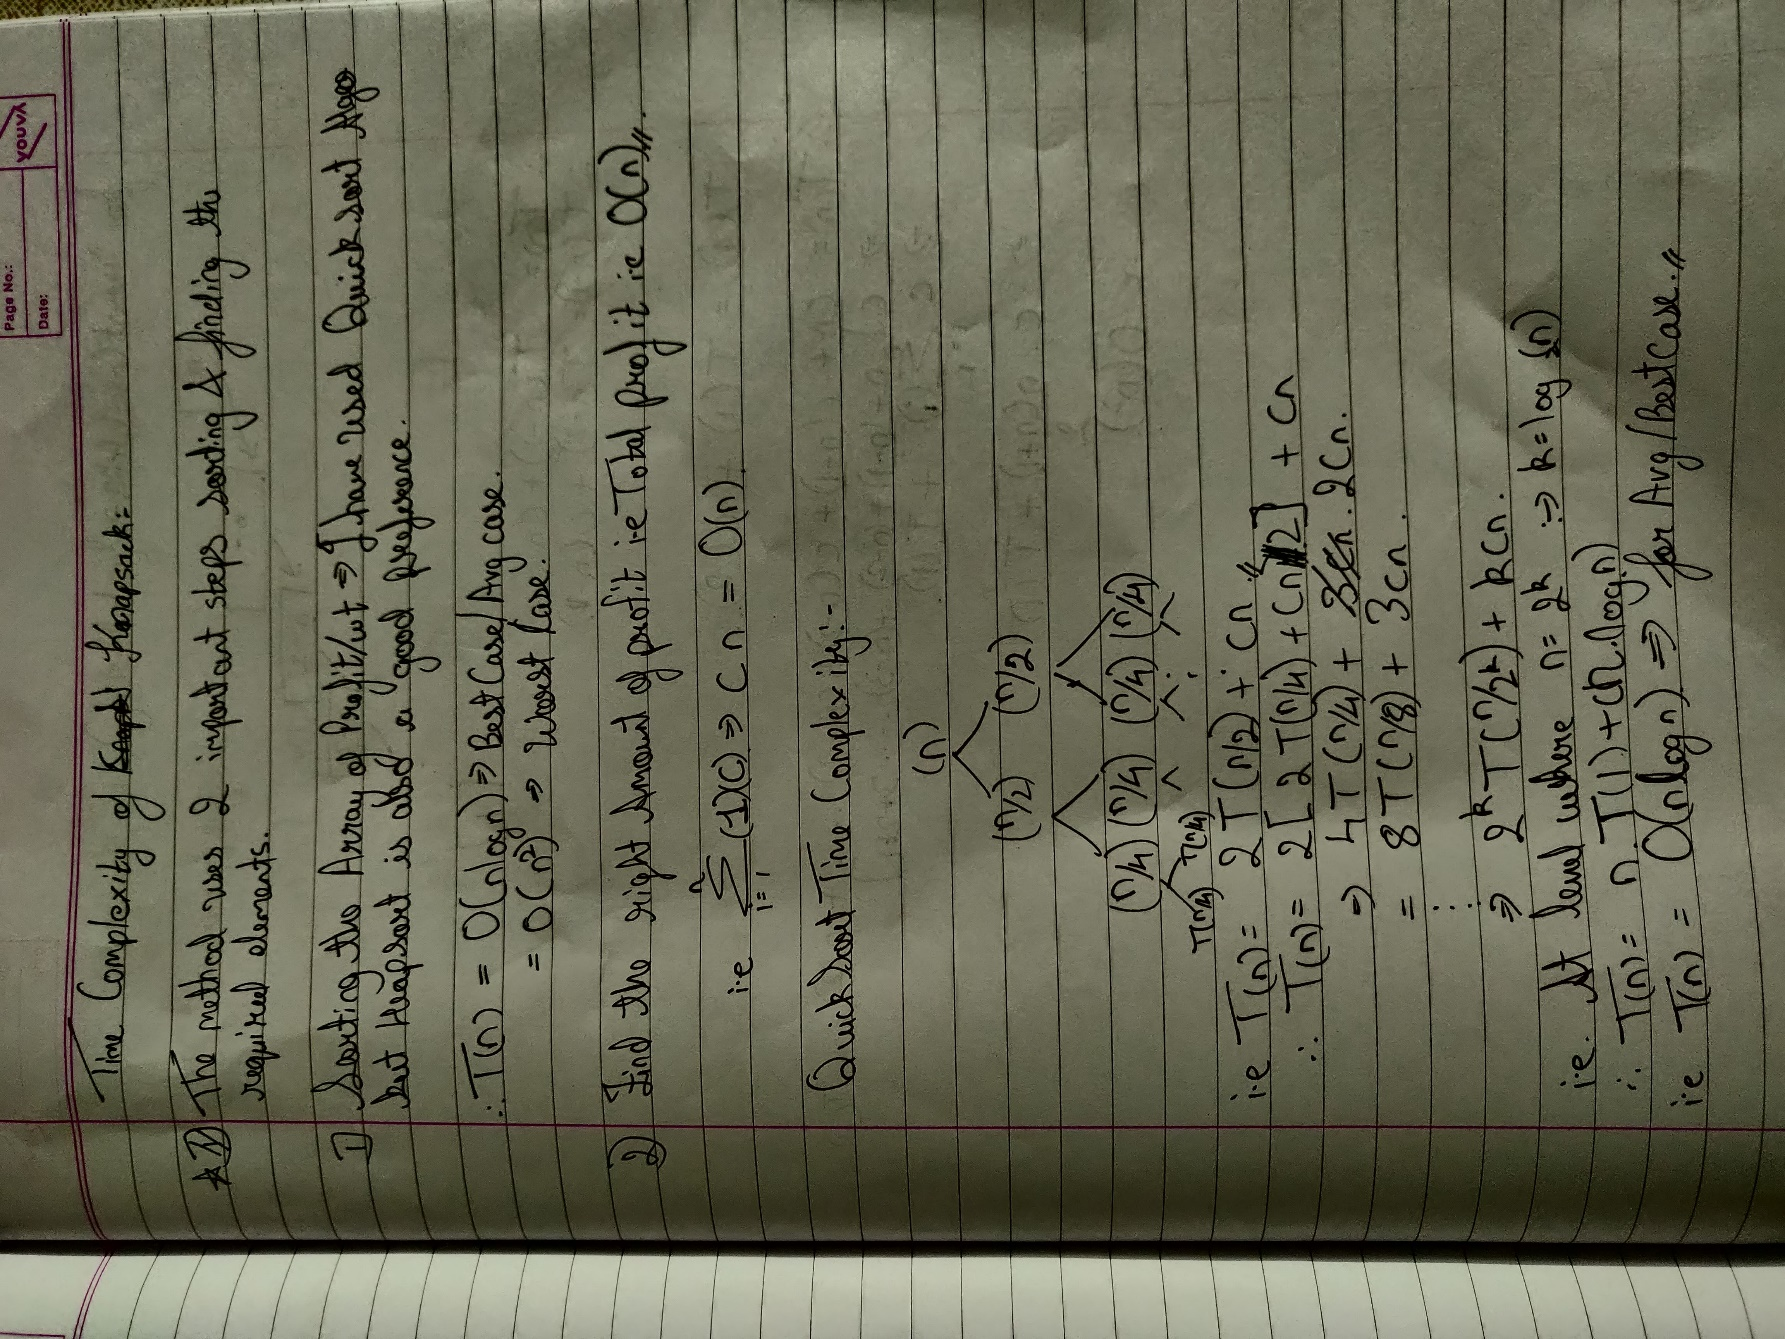 Page No.:
Date:
YOUVA
Time Complexity of Knapsack:-
* The method uses 2 important steps sorting & finding the
required elements.
1) Sorting the Array of Profit/wt ⇒ I have used Quick sort Algo
but Heapsort is also a good preference.
∴ T(n) = O(nlogn) ⇒ Best Case/Avg case.
= O(n²) ⇒ Worst Case.
2) Find the right Amount of profit i.e Total profit ie O(n)//.
i.e n∑i=1 (1)(C) ⇒ Cn = O(n).
Quick Sort Time Complexity:-
(n)
(n/2) (n/2)
(n/4) (n/4) (n/4) (n/4)
T(n/4) T(n/4)
i.e T(n) = 2T(n/2) + Cn
∴ T(n) = 2[2T(n/4) + Cn/2] + Cn
⇒ 4T(n/4) + 2Cn.
= 8T(n/8) + 3Cn.
⋮
⇒ 2ᵏT(n/2ᵏ) + kCn.
i.e. At level where n = 2ᵏ ⇒ k = log₂(n)
∴ T(n) = n.T(1) + cn.logn)
ie T(n) = O(nlogn) ⇒ for Avg/Best Case.//